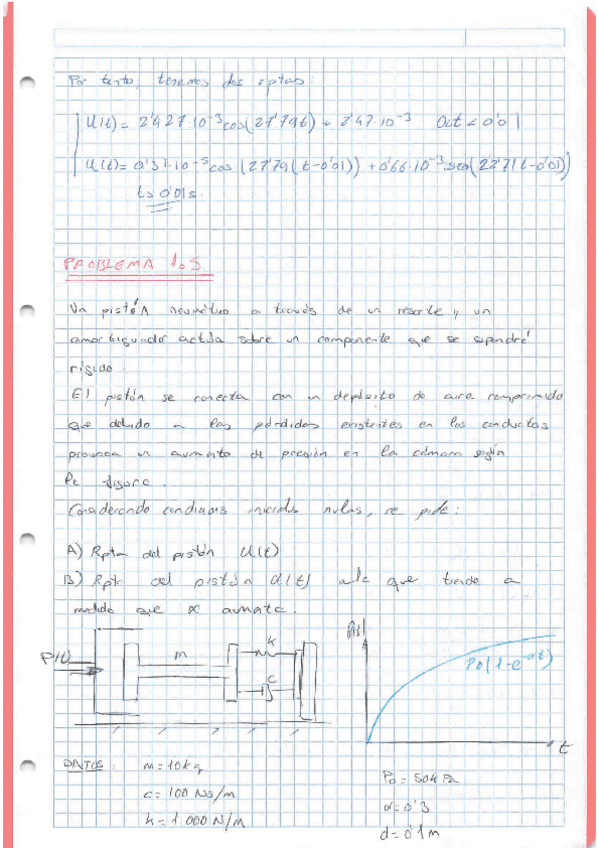 Por tanto, tenemos dos rptas:
U(t) = 2'427·10⁻³ cos(27'79t) + 2'47·10⁻³ 0<t<0'01
U(t) = 0'31·10⁻⁵ cos (27'79(t-0'01)) + 0'66·10⁻³ sen(22'71t-0'01)
t>0'01s.
PROBLEMA 1.5.
Un pistón neumático a través de un resorte y un
amortiguador actúa sobre un componente que se supondrá
rígido.
El pistón se conecta con un depósito de aire comprimido
que debido a las pérdidas existentes en los conductos
provoca un aumento de presión en la cámara según
la figura.
Considerando condiciones iniciales nulas, se pide:
A) Rpta del pistón U(t)
B) Rpta del pistón U(t) a la que tiende a
medida que α aumenta.
P(t)
m
k
c
P(t)
Po(1-e^-αt)
t
DATOS: m = 10kg
c = 100 Ns/m
k = 1.000 N/m
Po = 50kPa
α = 0'3
d = 0'1m